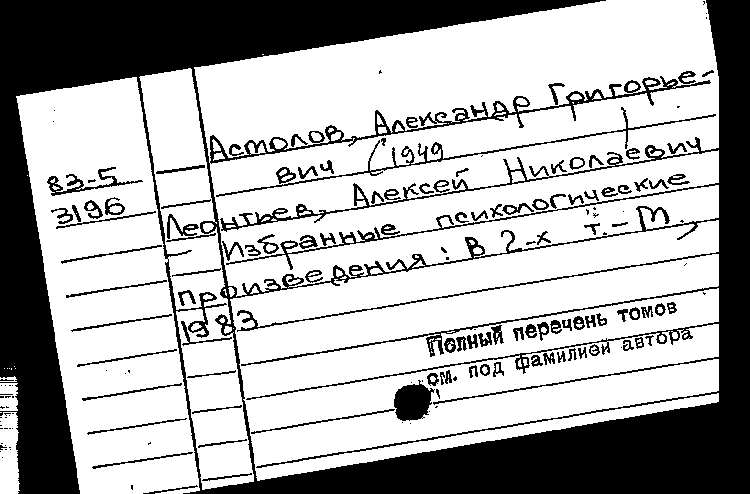 Астолов, Александр Григорье-
вич (1949 )
83-5
3196
Леонтьев, Алексей Николаевич
Избранные психологические
произведения: В 2-х т. - М.,
1983
Полный перечень томов
см. под фамилией автора